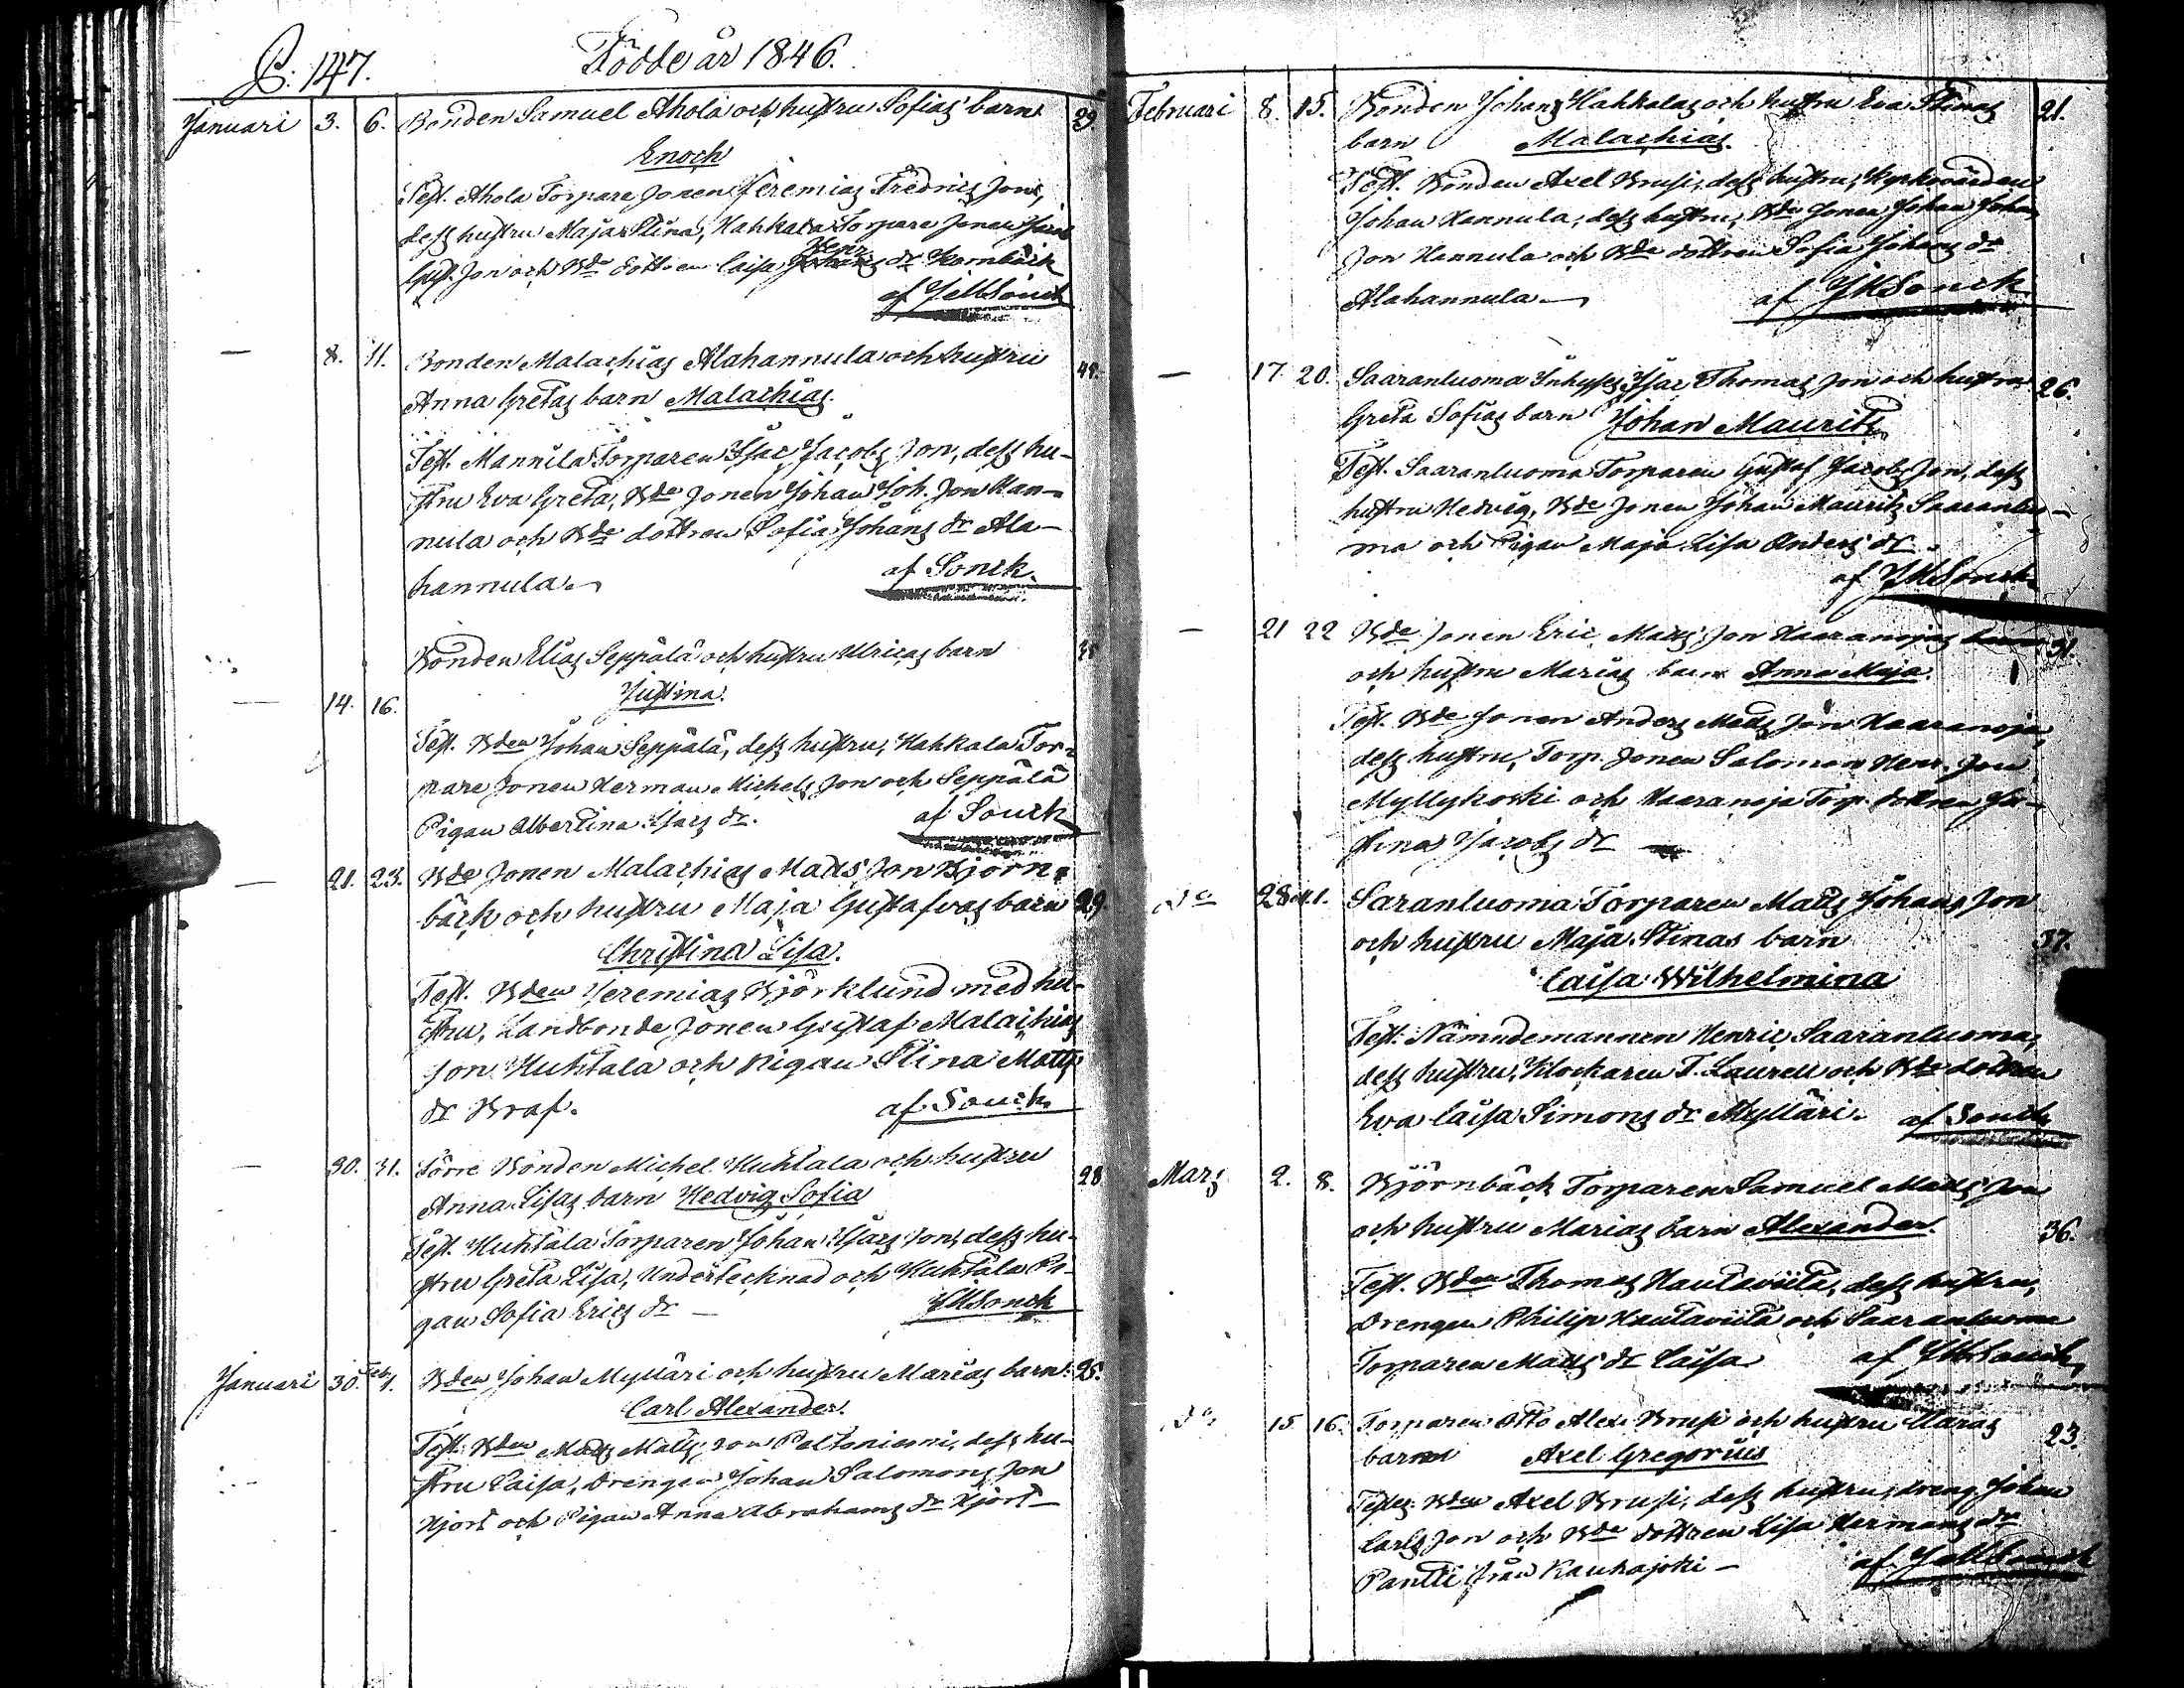 P. 147.
Födde år 1846.
Januari 3. 6. Bonden Samuel Ahola och hustru Sofias barn 29.
Enoch
Test. Ahola Torpare sonen Jeremias Fredrics son,
dess hustru Maja Stina, Hahkala Torpare sonen
son och Bde dottren Caisa Henr dr Kornbäck
af JMSonck
— 8. 11. Bonden Malachias Alahannula och hustru 44.
Anna Gretas barn Malachias.
Test. Mannila Torparen Isac Jacobs son, dess hu-
stru Eva Greta, Bde sonen Johan Joh. son Han-
nula och Bde dottren Sofia Johans dr Ala-
hannula. af Sonck.
Bonden Elias Seppälä och hustru Ulricas barn
— 14. 16. Justina.
Test. Bden Johan Seppälä, dess hustru, Hahkala Tor-
pare sonen Herman Michels son och Seppälä
Pigan Albertina Isacs dr. af Sonck
— 21. 23. Bde sonen Malachias Matts son Björn-
bäck och hustru Maja Gustafvas barn 29
Christina Lisa.
Test. Bden Jeremias Björklund med hu-
stru, Landbonde sonen Gustaf Malachias
son Huhtala och pigan Stina Matts
dr Braf. af Sonck.
— 30. 31. Förre Bonden Michel Huhtala och hustru 28
Anna Lisas barn Hedvig Sofia
Test. Huhtala Torparen Johan Isacs son, dess hu-
stru Greta Lisa, Undertecknad och Huhtala Pi-
gan Sofia Erics dr — JMSonck
Januari 30. Feb. 1. Bden Johan Mylläri och hustru Marias barn 25.
Carl Alexander.
Test. Bden Matts Matts son Peltoniemi, dess hu-
stru Caisa, Drengen Johan Salomons son
Hjort och Pigan Anna Abrahams dr Hjort —
Februari 8. 15. Bonden Johans Hahkalas och hustru Eva Stinas 21.
barn Malachias.
Test. Bonden Axel Brusi, dess hustru, Kyrkovärden
Johan Hannula, dess hustru, Bde sonen Johan Johan
son Hannula och Bde dottren Sofia Johans dr
Alahannula — af JMSonck
— 17. 20. Saaranluoma Inhyses Isac Thomas son och hustru 26.
Greta Sofias barn Johan Maurits
Test. Saaranluoma Torparen Gustaf Jacobs son, dess
hustru Hedvig, Bde sonen Johan Maurits Saaranluo-
ma och Pigan Maja Lisa Anders dr.
af JMSonck
— 21 22 Bde sonen Eric Matts son Haaranojas 31.
och hustru Marias barn Anna Maja.
Test. Bde sonen Anders Matts son Haaranoja,
dess hustru, Torp. sonen Salomon Henr. son
Myllykoski och Haaranoja Torp. dottren Ju-
stina Jacobs dr —
Do 28 M. 1. Saranluoma Torparen Matts Johans son
och hustru Maja Stinas barn 37.
Caisa Wilhelmina
Test. Nämndemannen Henric Saaranluoma,
dess hustru, Klockaren T. Laurell och Bde dottren
Eva Caisa Simons dr Mylläri. af Sonck
Mars 2. 8. Björnbäck Torparen Samuel Matts son
och hustru Marias barn Alexander. 36.
Test. Bden Thomas Hautaviita, dess hustru,
Drengen Philip Hautaviita och Saaranluoma
Torparen Matts dr Caisa af JMSonck
Do 15 16. Torparen Otto Alex. Brusi och hustru Claras 23.
barn Axel Gregorius
Testes Bden Axel Brusi, dess hustru, dreng. Johan
Carls son och Bde dottren Lisa Hermans dr
Pantti från Kauhajoki — af JMSonck